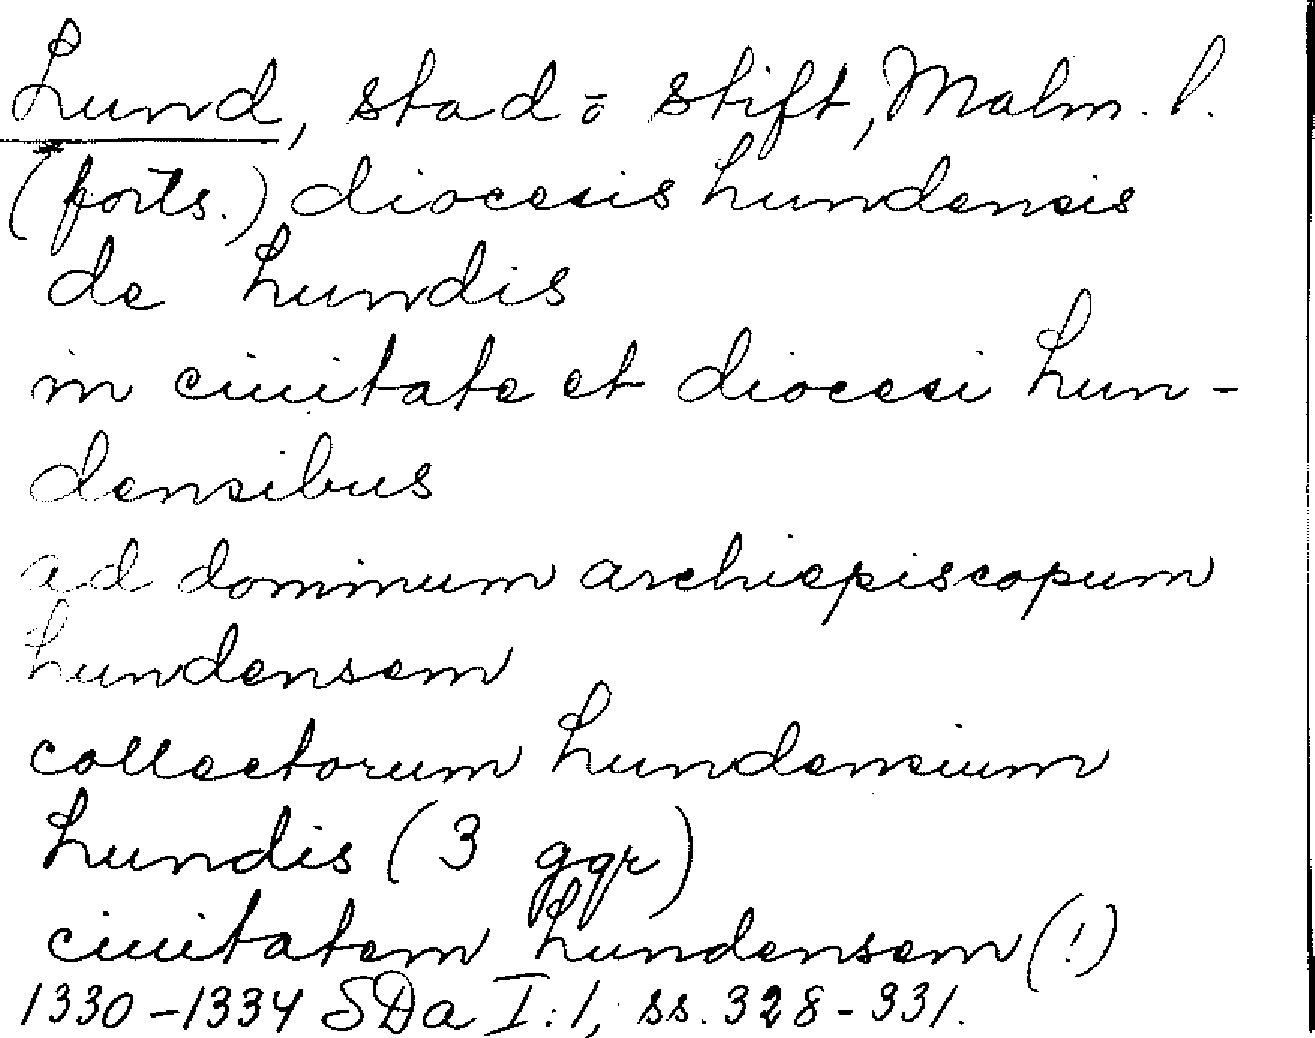 Lund, stad o stift, Malm. l.
(forts.) diocesis Lundensis
de Lundis
in ciuitate et diocesi Lun-
densibus
ad dominum archiepiscopum
Lundensem
collectorum Lundensium
Lundis (3 ggr)
ciuitatem Lundensem (!)
1330-1334 SDa I:1, ss. 328-331.